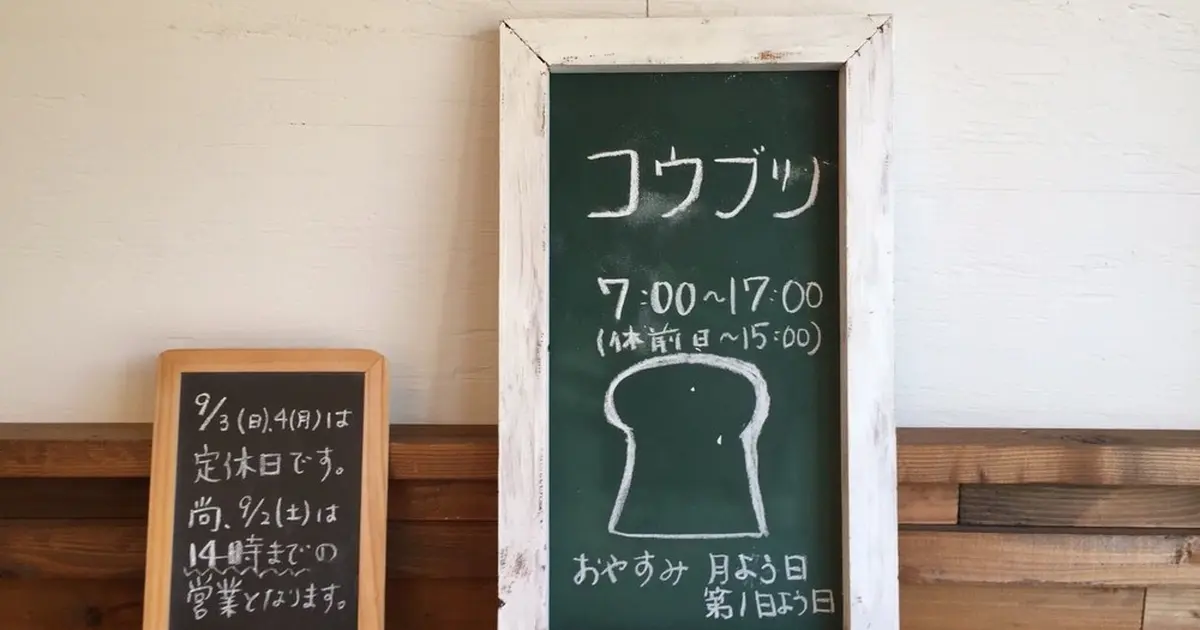 9/3(日)、4(月)は
定休日です。
尚、9/2(土)は
14時までの
営業となります。
コウブツ
7:00~17:00
(休前日~15:00)
おやすみ 月よう日
第1日よう日